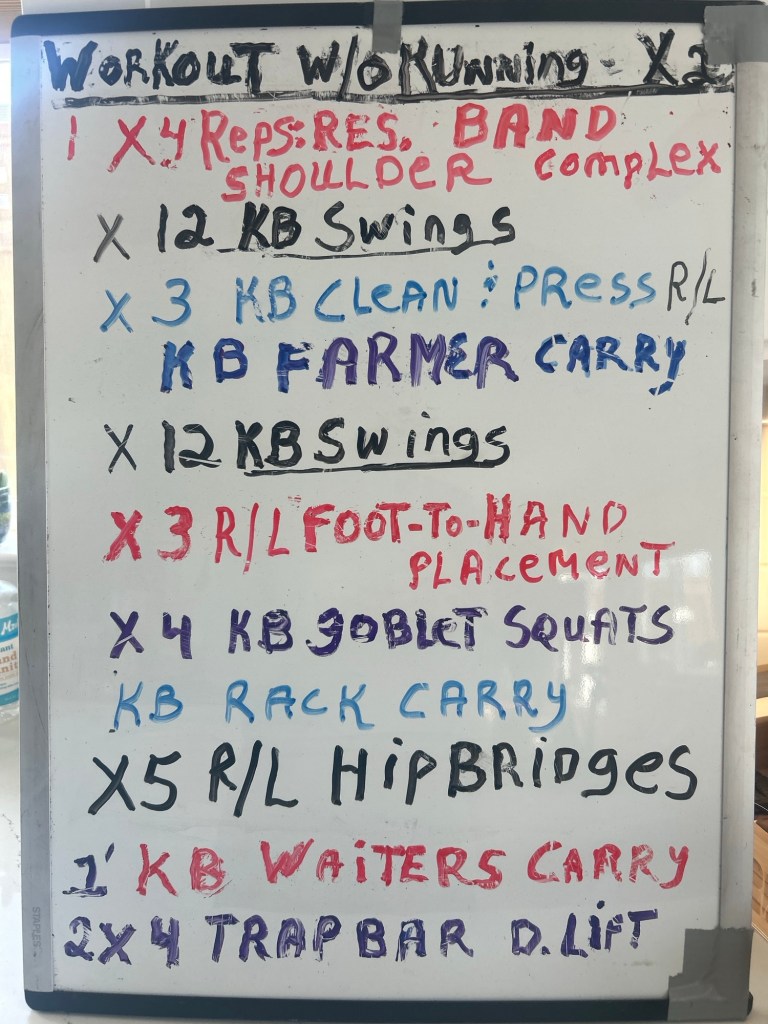 WORKOUT W/O RUNNING - X2
1 X4 Reps: RES. BAND
SHOULDER COMPLEX
X 12 KB Swings
X 3 KB CLEAN & PRESS R/L
KB FARMER CARRY
X 12 KB Swings
X 3 R/L FOOT-TO-HAND
PLACEMENT
X 4 KB GOBLET SQUATS
KB RACK CARRY
X5 R/L HIP BRIDGES
1' KB WAITERS CARRY
2X4 TRAP BAR D. LIFT
STAPLES